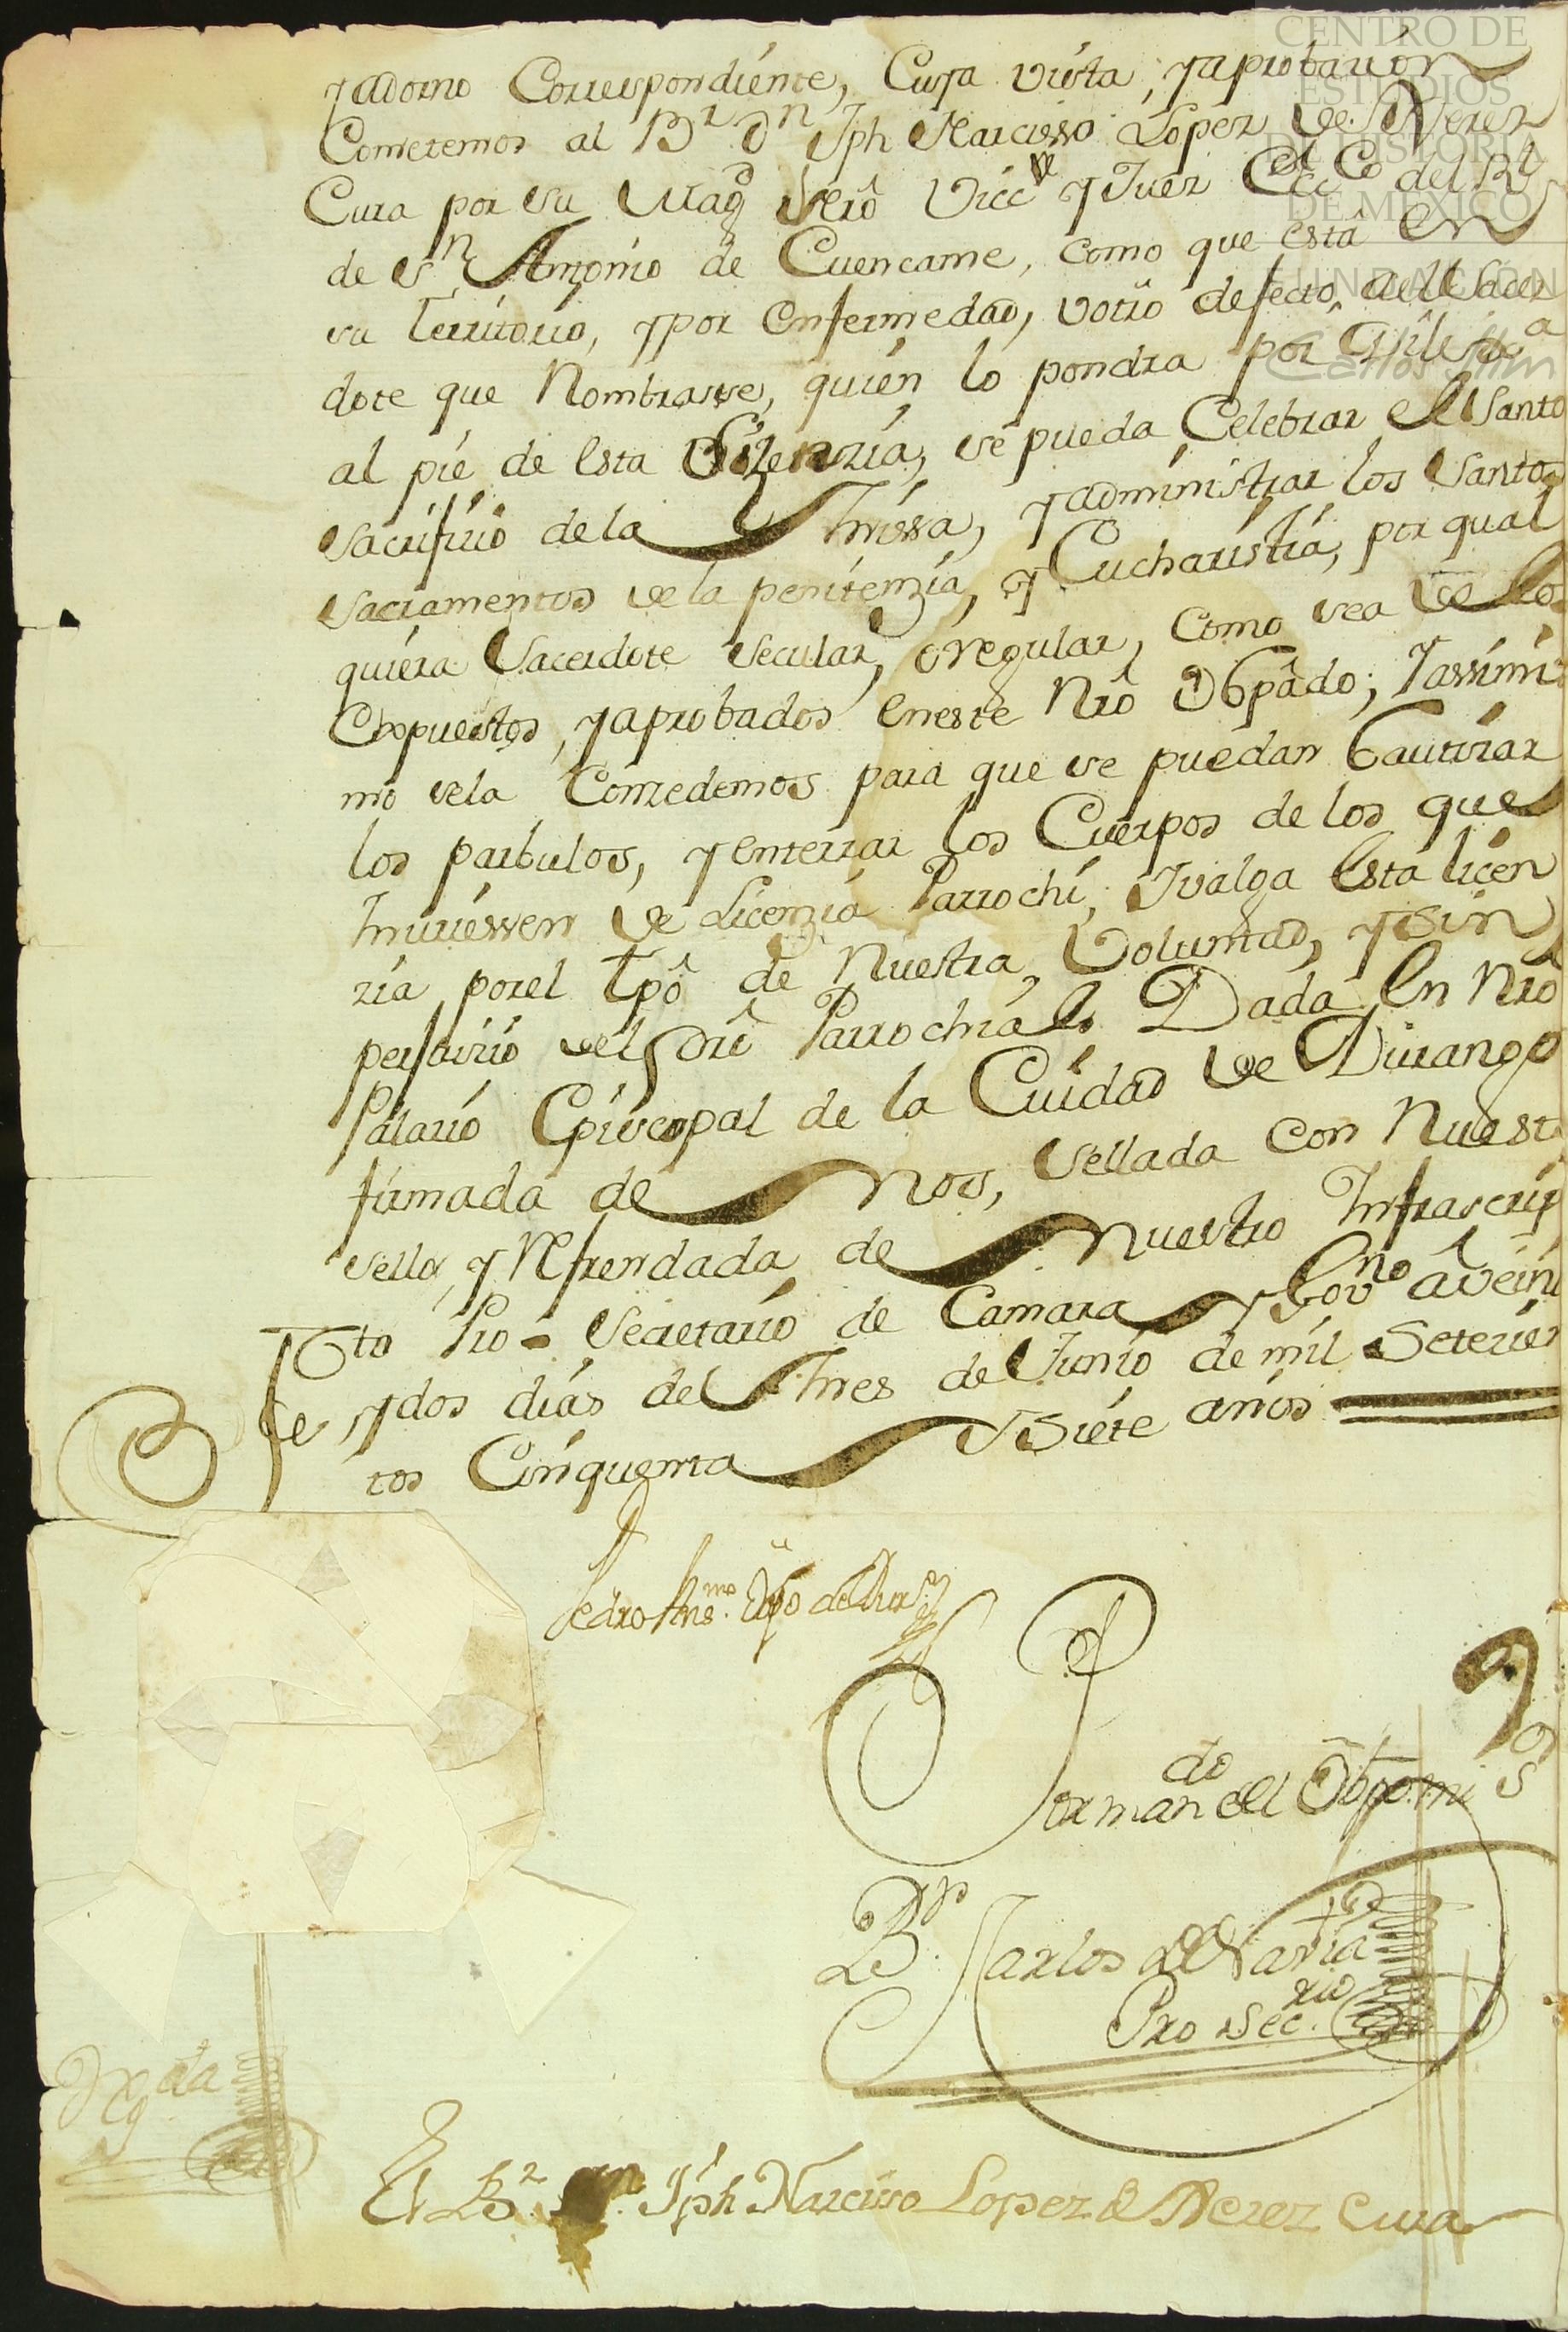 CENTRO DE
ESTUDIOS
DE HISTORIA
DE MÉXICO
FUNDACIÓN
Carlos Slim
y adorno Correspondiente, Cuya vista, y aprobacion
Cometemos al Br Dn Jph Narcisso Lopez de Xerez
Cura por su Magd Vicro y Juez Ecco del Rl
de Sn Antonio de Cuencame, como que està en
su Territorio, y por enfermedad, v otro defecto, al Sacer
dote que Nombrasse, quien lo pondra por dilixa
al pie de esta Lizenzia, se pueda Celebrar el Santo
Sacrifizio de la Missa, y administrar los Santos
Sacramentos de la penitenzia, y Eucharistia, por qual
quiera Sacerdote Secular, ò regular, como sea de los
Expuestos, y aprobados en este Nro Obpâdo; Y assimi
mo sela Conzedemos para que se puedan bautizar
los parbulos, y enterrar los Cuerpos de los que
muriessen de Lizenzia Parrochi; Y valga esta licen
zia por el tpô de Nuestra Voluntad, y sin
perjuizio del Drô Parrochial. Dada en Nrô
Palazio Episcopal de la Ciudad de Durango
firmada de Nos, Sellada con Nuest
Sello, y Refrendada de Nuestro Infrascrip
to Pro-Secretario de Camara y Govno à vein
te y dos dias del Mes de Junio de mil Setezien
tos Cinquenta y Siete años
Pedro Ans.mo Obpo de Dur.go
Por mando del Obpo. mi Sr
Br. Carlos de Narria
Pro Sec.rio
Reg.da
El Br. Dn. Jph Narciso Lopez de Xerez Cura